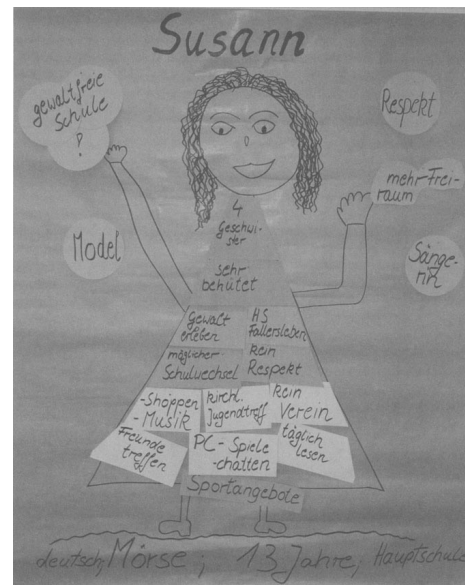 Susann
gewaltfreie
Schule
!
Respekt
mehr Frei-
raum
Model
Sänge-
rin
4
Geschwi-
ster
sehr
behütet
Gewalt
erleben
HS
Fallersleben
möglicher
Schulwechsel
kein
Respekt
-Shoppen
-Musik
kirchl.
Jugendtreff
kein
Verein
Freunde
treffen
PC-Spiele
-chatten
täglich
lesen
Sportangebote
deutsch, Mörse, 13 Jahre, Hauptschule